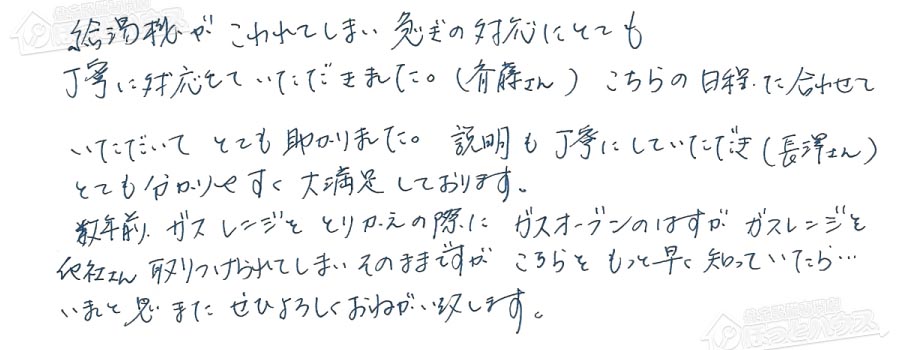 給湯機がこわれてしまい 急ぎの対応にとても
丁寧に対応をていただきました。(斉藤さん) こちらの日程に合わせて
いただいて とても助かりました。説明も丁寧にしていただき(長澤さん)
とても分かりやすく大満足しております。
数年前 ガスレンジをとりかえの際に ガスオーブンのはずが ガスレンジを
他社さん取りつけられてしまいそのままですが こちらをもっと早く知っていたら…
いまと思 また ぜひよろしくおねがい致します。
ほっとハウス